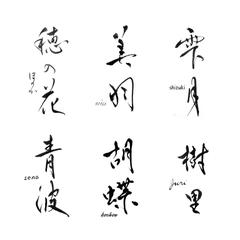 穂の花
ほのか
美羽
雫月
shizuki
青波
sena
胡蝶
樹里
juri